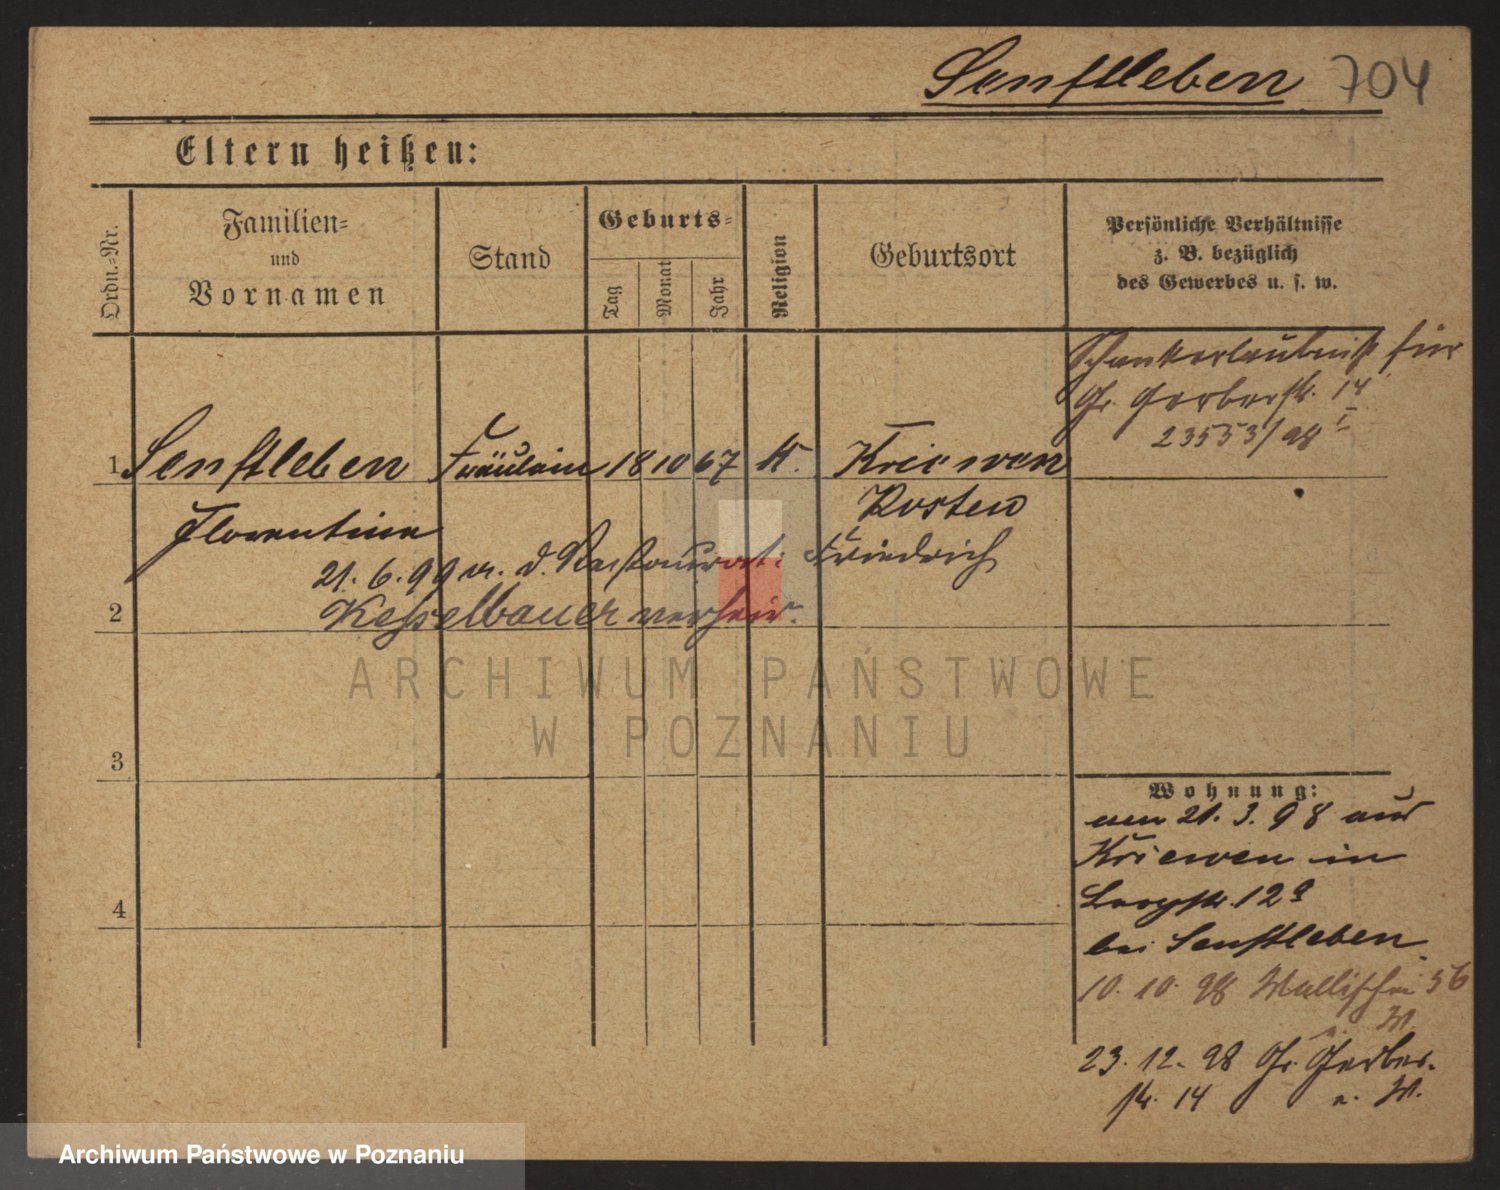 Senftleben 704
Eltern heißen:
Ordn.-Nr.
Familien-
und
Vornamen
Stand
Geburts-
Tag
Monat
Jahr
Religion
Geburtsort
Persönliche Verhältnisse
z. B. bezüglich
des Gewerbes u. s. w.
Schankerlaubniß für
Gr. Gerberstr. 14
23553/98 I
1 Senftleben Fräulein 18 10 67 K. Kriewen
Florentine Kosten
21. 6. 99 m. d. Restaurat. Friedrich
2 Kesselbauer verheir.
3
4
Wohnung:
am 21. 3. 98 aus
Kriewen in
12a
bei Senftleben
10. 10. 98 Wallischei 56
a. W.
23. 12. 98 Gr. Gerber-
str. 14 a. W.
ARCHIWUM PAŃSTWOWE
W POZNANIU
Archiwum Państwowe w Poznaniu